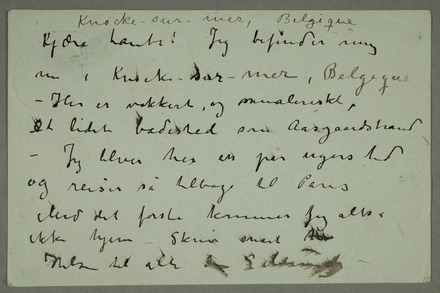 Knocke-sur-mer, Belgique
Kjære tante! Jeg befinder mig
nu i Knocke-sur-mer, Belgique
- Her er vakkert, og malerisk,
et lidet badested som Aasgaardstrand
- Jeg bliver her en par ugers tid
og reiser så tilbage til Paris
Med det første kommer jeg altså
ikke hjem - Skriv snart
Hilsen til alle